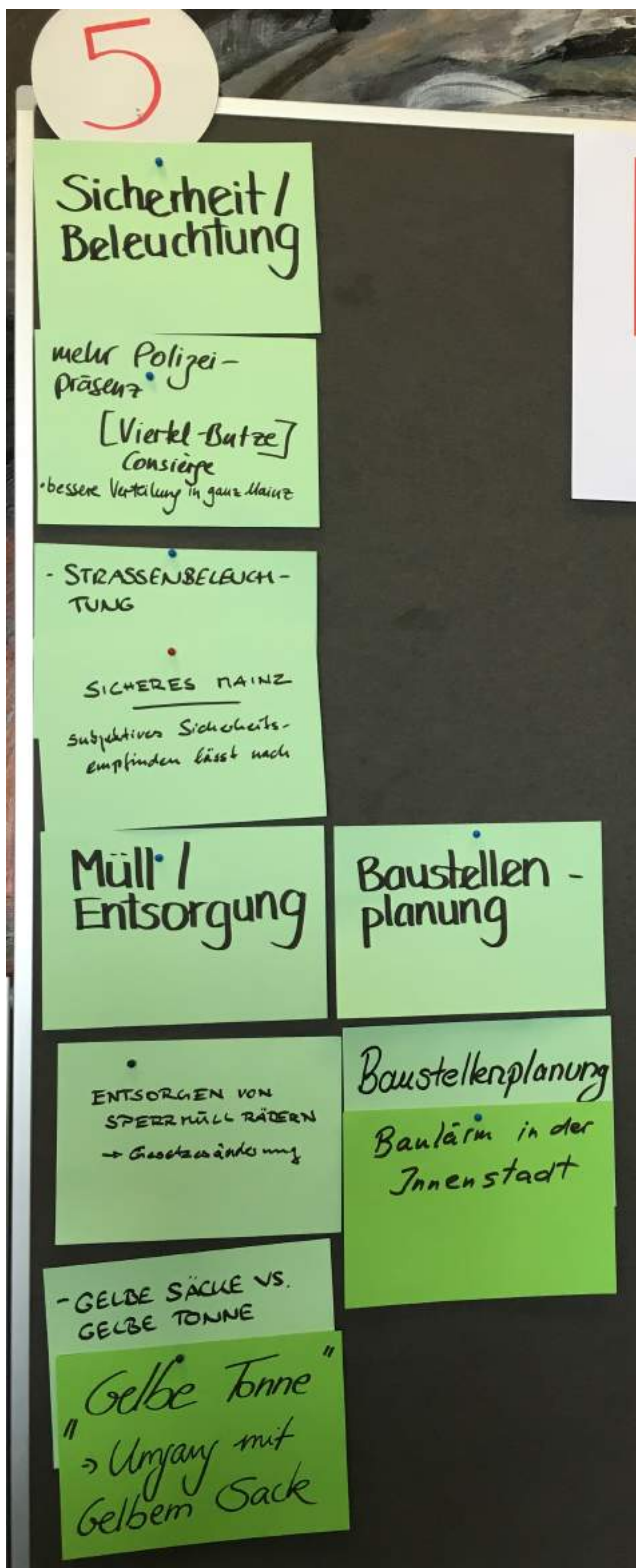 5
Sicherheit /
Beleuchtung
mehr Polizei-
präsenz
[Viertel-Butze]
Consierge
• bessere Verteilung in ganz Mainz
- STRASSENBELEUCH-
TUNG
SICHERES MAINZ
subjektives Sicherheits-
empfinden lässt nach
Müll /
Entsorgung
ENTSORGEN VON
SPERRMÜLL RÄDERN
→ Gesetzesänderung
- GELBE SÄCKE VS.
GELBE TONNE
"Gelbe Tonne"
→ Umgang mit
Gelbem Sack
Baustellen-
planung
Baustellenplanung
Baulärm in der
Innenstadt